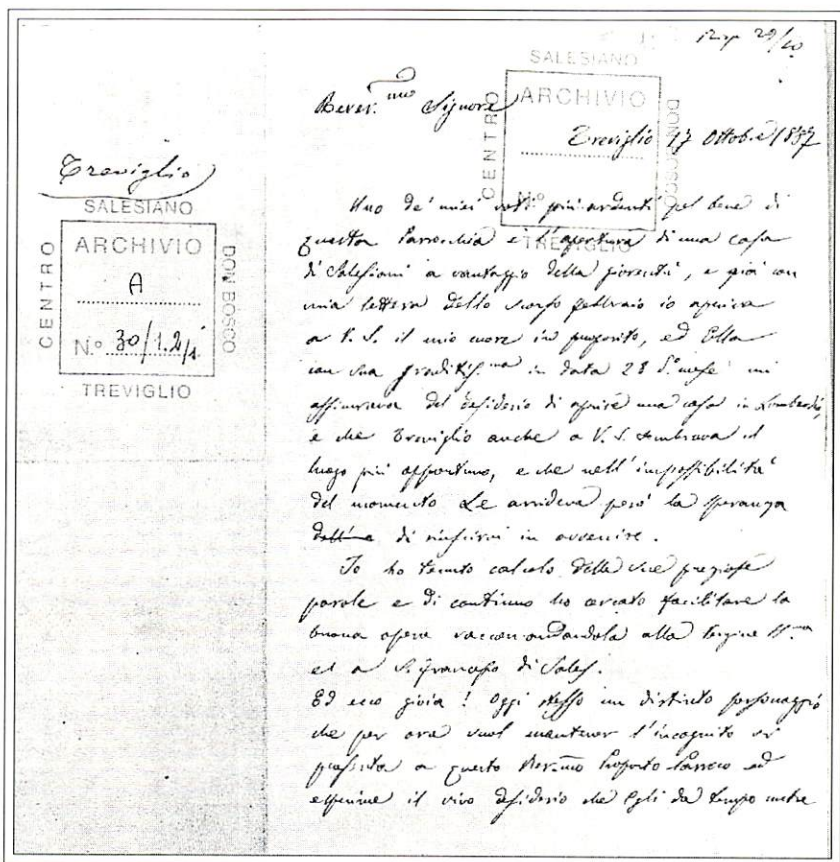 Treviglio
SALESIANO
CENTRO
ARCHIVIO
A
N.o 30/1.2/1
DON BOSCO
TREVIGLIO
29/10
SALESIANO
CENTRO
ARCHIVIO
N.o
DON BOSCO
TREVIGLIO
Rever.mo Signore
Treviglio 17 Ottobre 1887
Uno de' miei voti più ardenti pel bene di
questa Parrocchia è l'apertura di una casa
di Salesiani a vantaggio della gioventù, e già con
mia lettera dello scorso febbraio io apriva
a V. S. il mio cuore in proposito, ed Ella
con sua graditiss.ma in data 28 d.o mese mi
assicurava del desiderio di aprire una casa in Lombardia,
e che Treviglio anche a V. S. sembrava il
luogo più opportuno, e che nell'impossibilità
del momento Le arrideva però la speranza
di riuscirvi in avvenire.
Io ho tenuto calcolo delle sue preziose
parole e di continuo ho cercato facilitare la
buona opera raccomandandola alla Vergine SS.ma
ed a S. Francesco di Sales.
Ed ecco gioia! Oggi stesso un distinto personaggio
che per ora vuol mantener l'incognito si
presenta a questo Rev.mo Proposto Parroco ed
esprime il vivo desiderio che Egli da tempo nutre